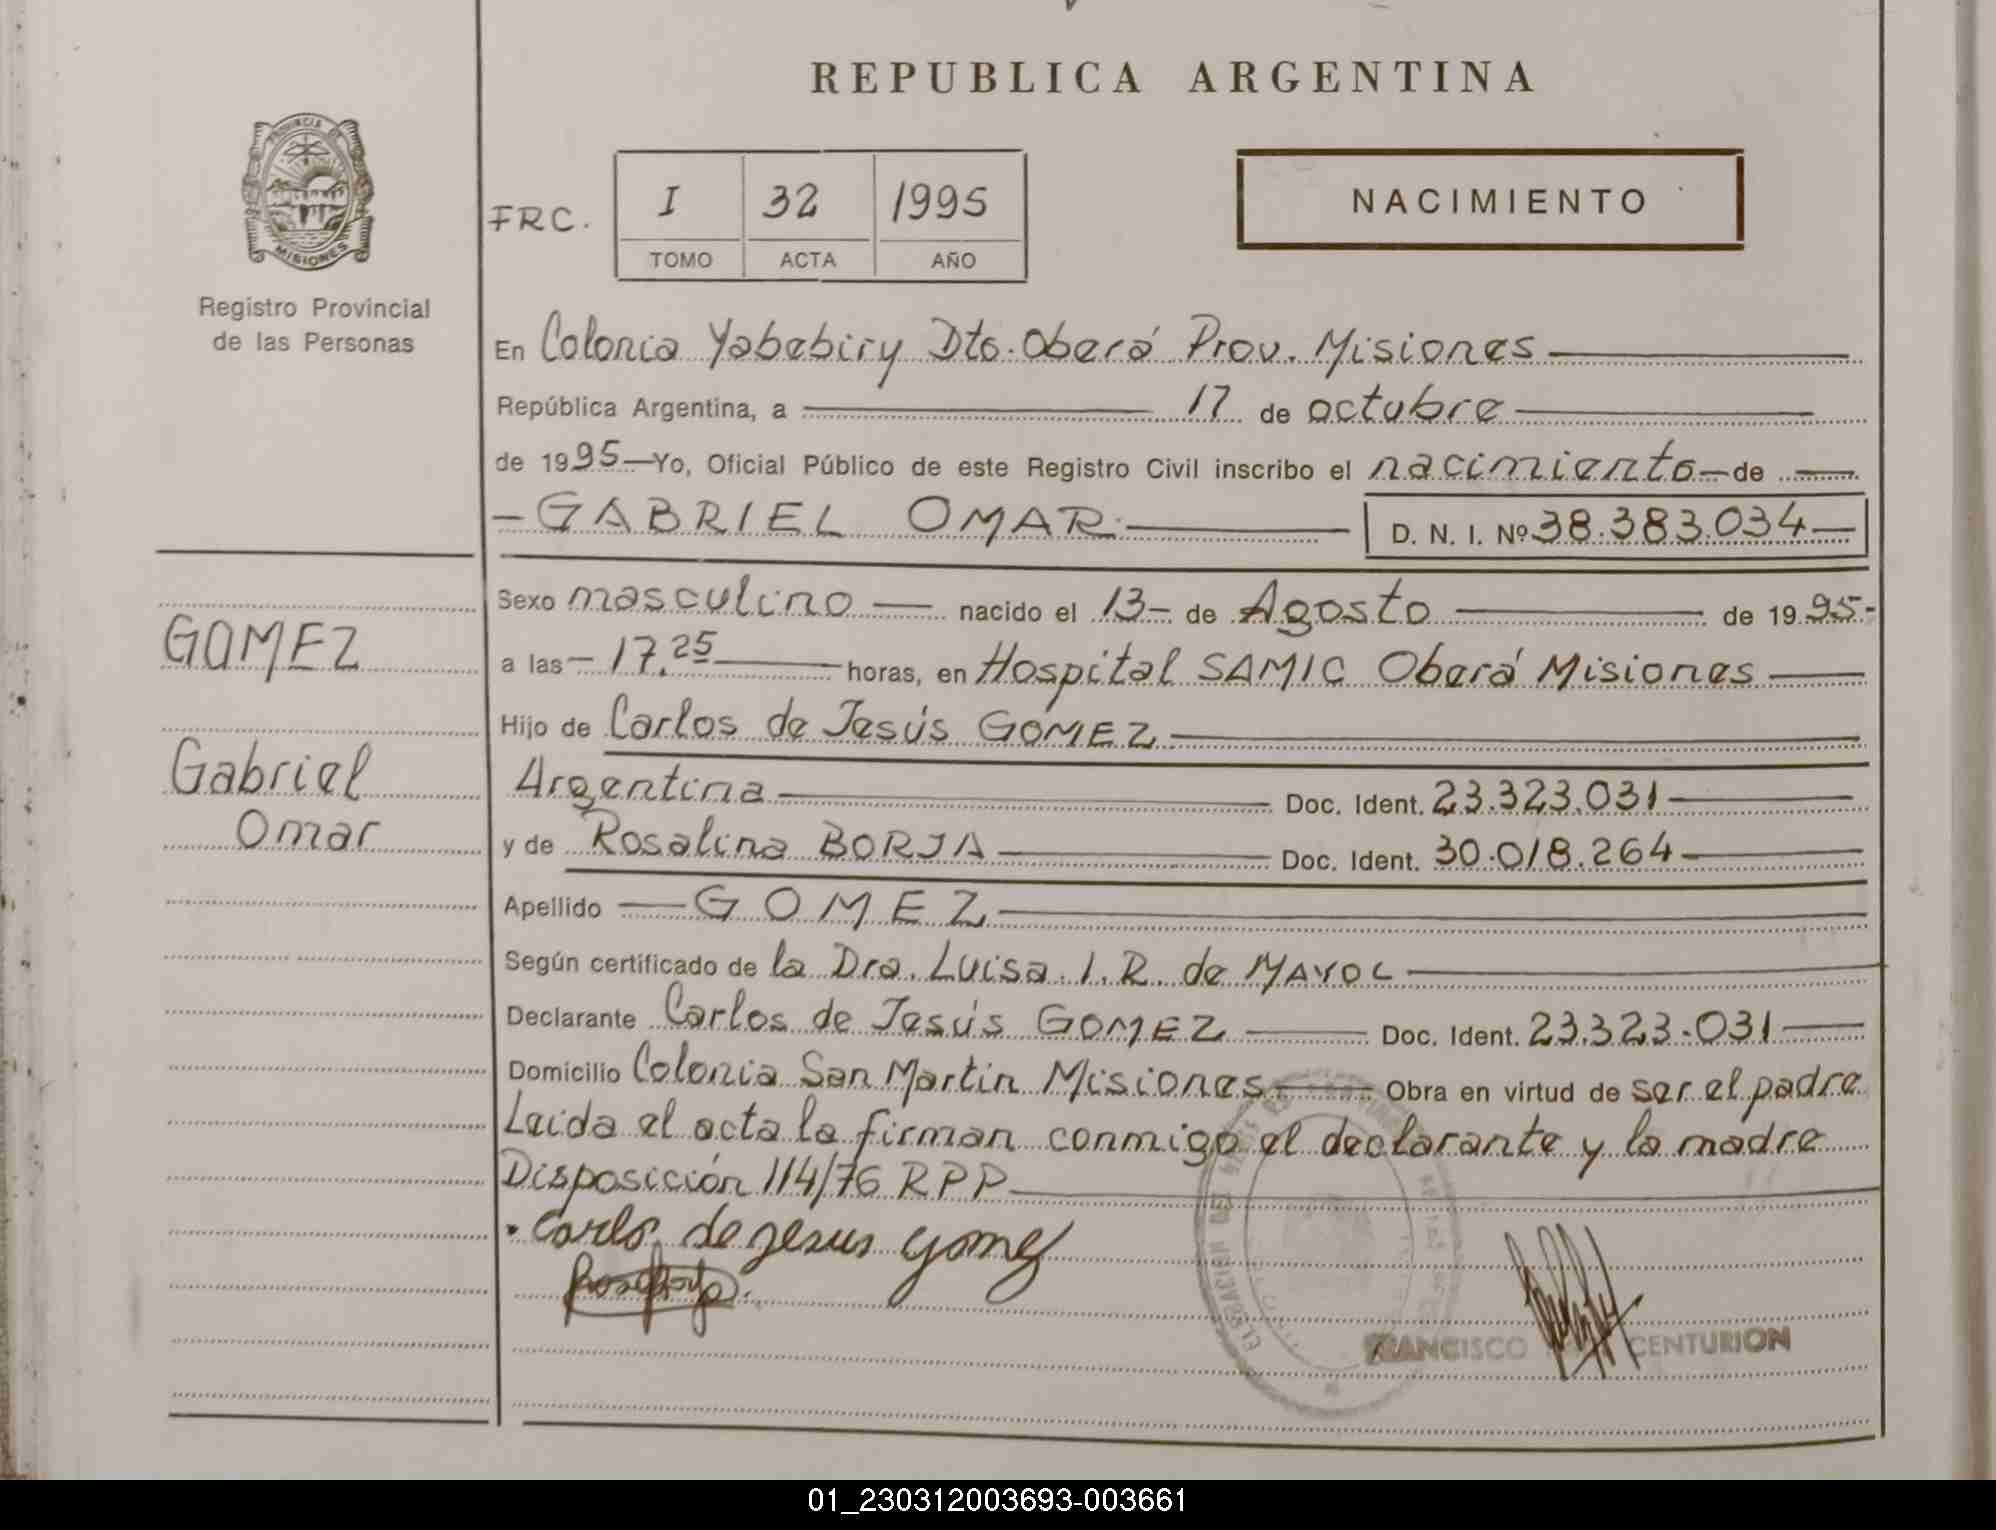 REPUBLICA ARGENTINA
PROVINCIA DE
MISIONES
Registro Provincial
de las Personas
FRC.
I 32 1995
TOMO ACTA AÑO
NACIMIENTO
En Colonia Yabebiry Dto. Oberá Prov. Misiones
República Argentina, a 17 de octubre
de 1995 Yo, Oficial Público de este Registro Civil inscribo el nacimiento de
GABRIEL OMAR D. N. I. Nº 38.383.034
Sexo masculino nacido el 13 de Agosto de 1995
a las 17.25 horas, en Hospital SAMIC Oberá Misiones
Hijo de Carlos de Jesús GOMEZ
Argentina Doc. Ident. 23.323.031
y de Rosalina BORJA Doc. Ident. 30.018.264
Apellido GOMEZ
Según certificado de la Dra. Luisa I. R. de MAYOL
Declarante Carlos de Jesús GOMEZ Doc. Ident. 23.323.031
Domicilio Colonia San Martin Misiones Obra en virtud de ser el padre
Leida el acta la firman conmigo el declarante y la madre
Disposición 114/76 RPP
Carlos de jesus gomez
FRANCISCO CENTURION
GOMEZ
Gabriel
Omar
01_230312003693-003661